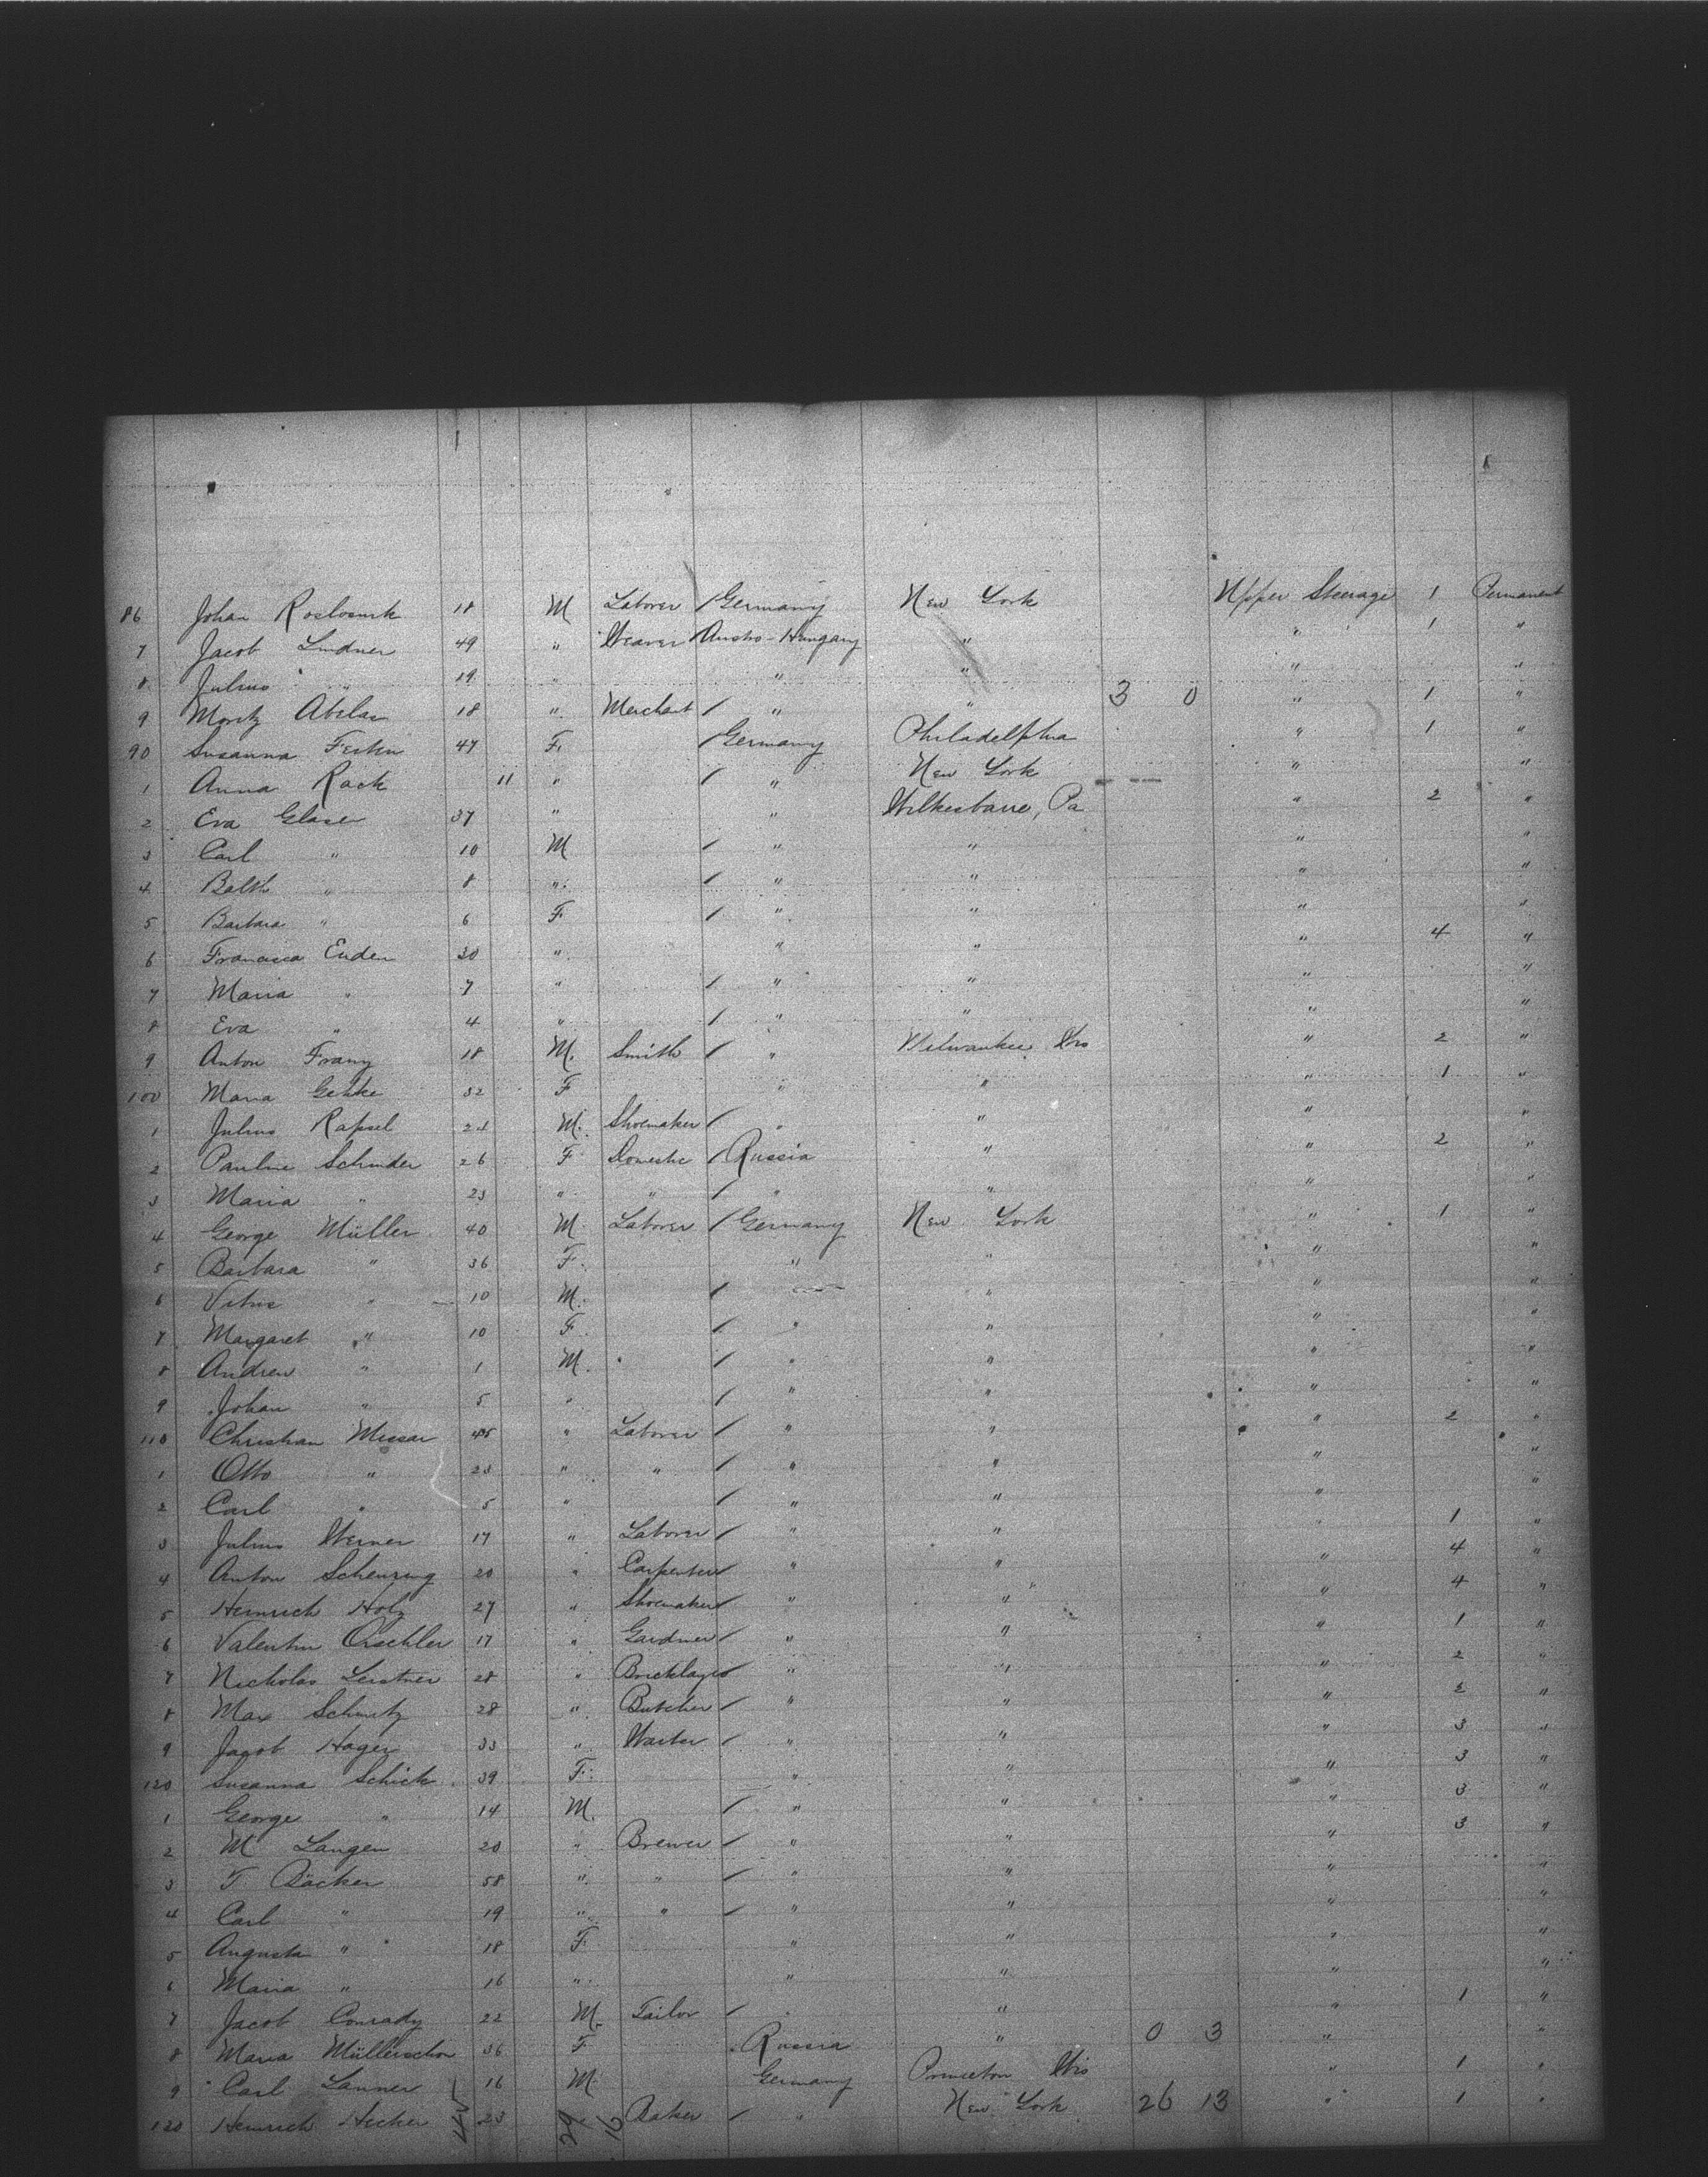 86 Johan Roslosnik 18 M Laborer / Germany New York Upper Steerage 1 Permanent
7 Jacob Lindner 49 " Weaver / Austro-Hungary " " 1 "
8 Julius " 19 " " " " "
9 Moritz Abelas 18 " Merchant / " " 3 0 " 1 "
90 Susanna Festen 47 F. / Germany Philadelphia " 1 "
1 Anna Rack 11 " / " New York " "
2 Eva Glaser 37 " " Wilkesbarre, Pa " 2 "
3 Carl " 10 M / " " " "
4 Balth " 8 " / " " " "
5 Barbara " 6 F / " " " "
6 Francisca Enden 30 " " " " 4 "
7 Maria " 7 " / " " " "
8 Eva " 4 " / " " " "
9 Anton Franz 18 M. Smith / " Milwaukee Wis " 2 "
100 Maria Gehke 32 F " " " 1 "
1 Julius Rapsel 24 M. Shoemaker / " " " "
2 Pauline Schnider 26 F Domestic / Russia " " 2 "
3 Maria " 23 " " / " " " "
4 George Müller 40 M Laborer / Germany New York " 1 "
5 Barbara " 36 F. " " " "
6 Vitus " 10 M. / " " "
7 Margaret " 10 F. / " " " "
8 Andrew " 1 M. / " " " "
9 Johan " 5 " / " " " "
110 Christian Messar 45 " Laborer / " " " 2 "
1 Otto " 23 " " / " " " "
2 Carl " 5 " / " " " "
3 Julius Werner 17 " Laborer / " " " 1 "
4 Anton Scheuring 20 " Carpenter / " " " 4 "
5 Heinrich Holz 27 " Shoemaker / " " " 4 "
6 Valentin Orschler 17 " Gardner / " " " 1 "
7 Nicholas Leistner 28 " Bricklayer / " " " 2 "
8 Max Schmitz 28 " Butcher / " " " 2 "
9 Jacob Hager 33 " Waiter / " " " 3 "
120 Susanna Schick 39 F. " " " 3 "
1 George " 14 M. / " " " 3 "
2 M Langen 20 " Brewer / " " " 3 "
3 T Bäcker 58 " " / " " " "
4 Carl " 19 " " / " " " "
5 Augusta " 18 F " " " "
6 Maria " 16 " " " " "
7 Jacob Conrady 22 M. Tailor / " " " 1 "
8 Maria Müllerschon 36 F Russia " 0 3 " "
9 Carl Lanner 16 M Germany Princeton Wis " 1 "
120 Heinrich Hecker 23 29 16 Baker / " New York 26 13 " 1 "